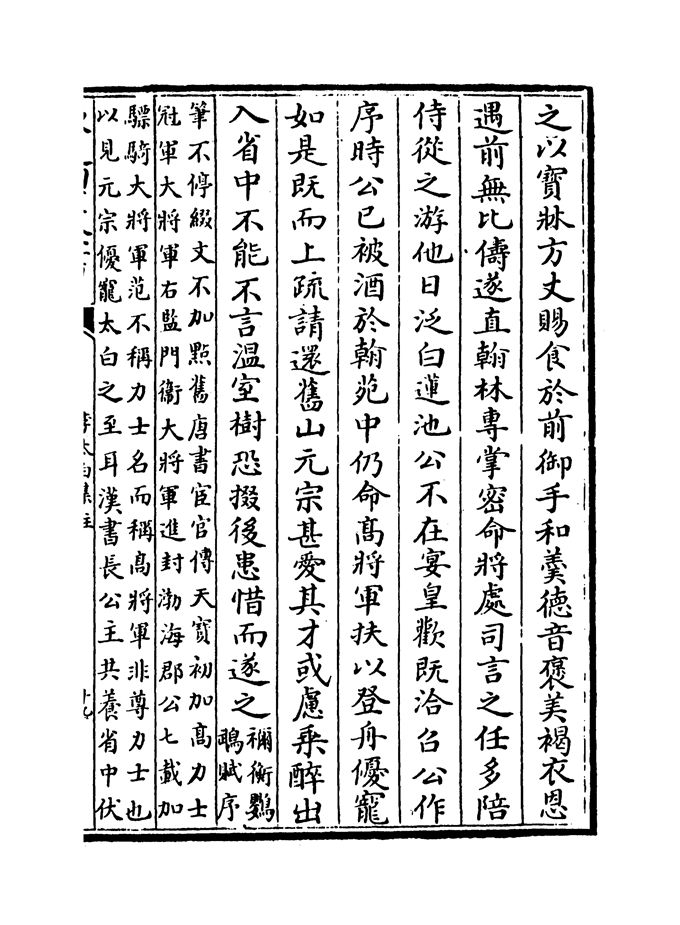 之以寶牀方丈賜食於前御手和羮德音褒美褐衣恩
遇前無比儔遂直翰林專掌密命將處司言之任多陪
侍從之游他日泛白蓮池公不在宴皇歡既洽召公作
序時公已被酒於翰苑中仍命髙將軍扶以登舟優寵
如是既而上疏請還舊山元宗甚愛其才或慮乘醉出
入省中不能不言溫室樹恐掇後患惜而遂之
禰衡鸚
鵡賦序
筆不停綴文不加點舊唐書宦官傳天寶初加髙力士
冠軍大將軍右監門衞大將軍進封渤海郡公七載加
驃騎大將軍范不稱力士名而稱髙將軍非尊力士也
以見元宗優寵太白之至耳漢書長公主共養省中伏
李太白集注
十九